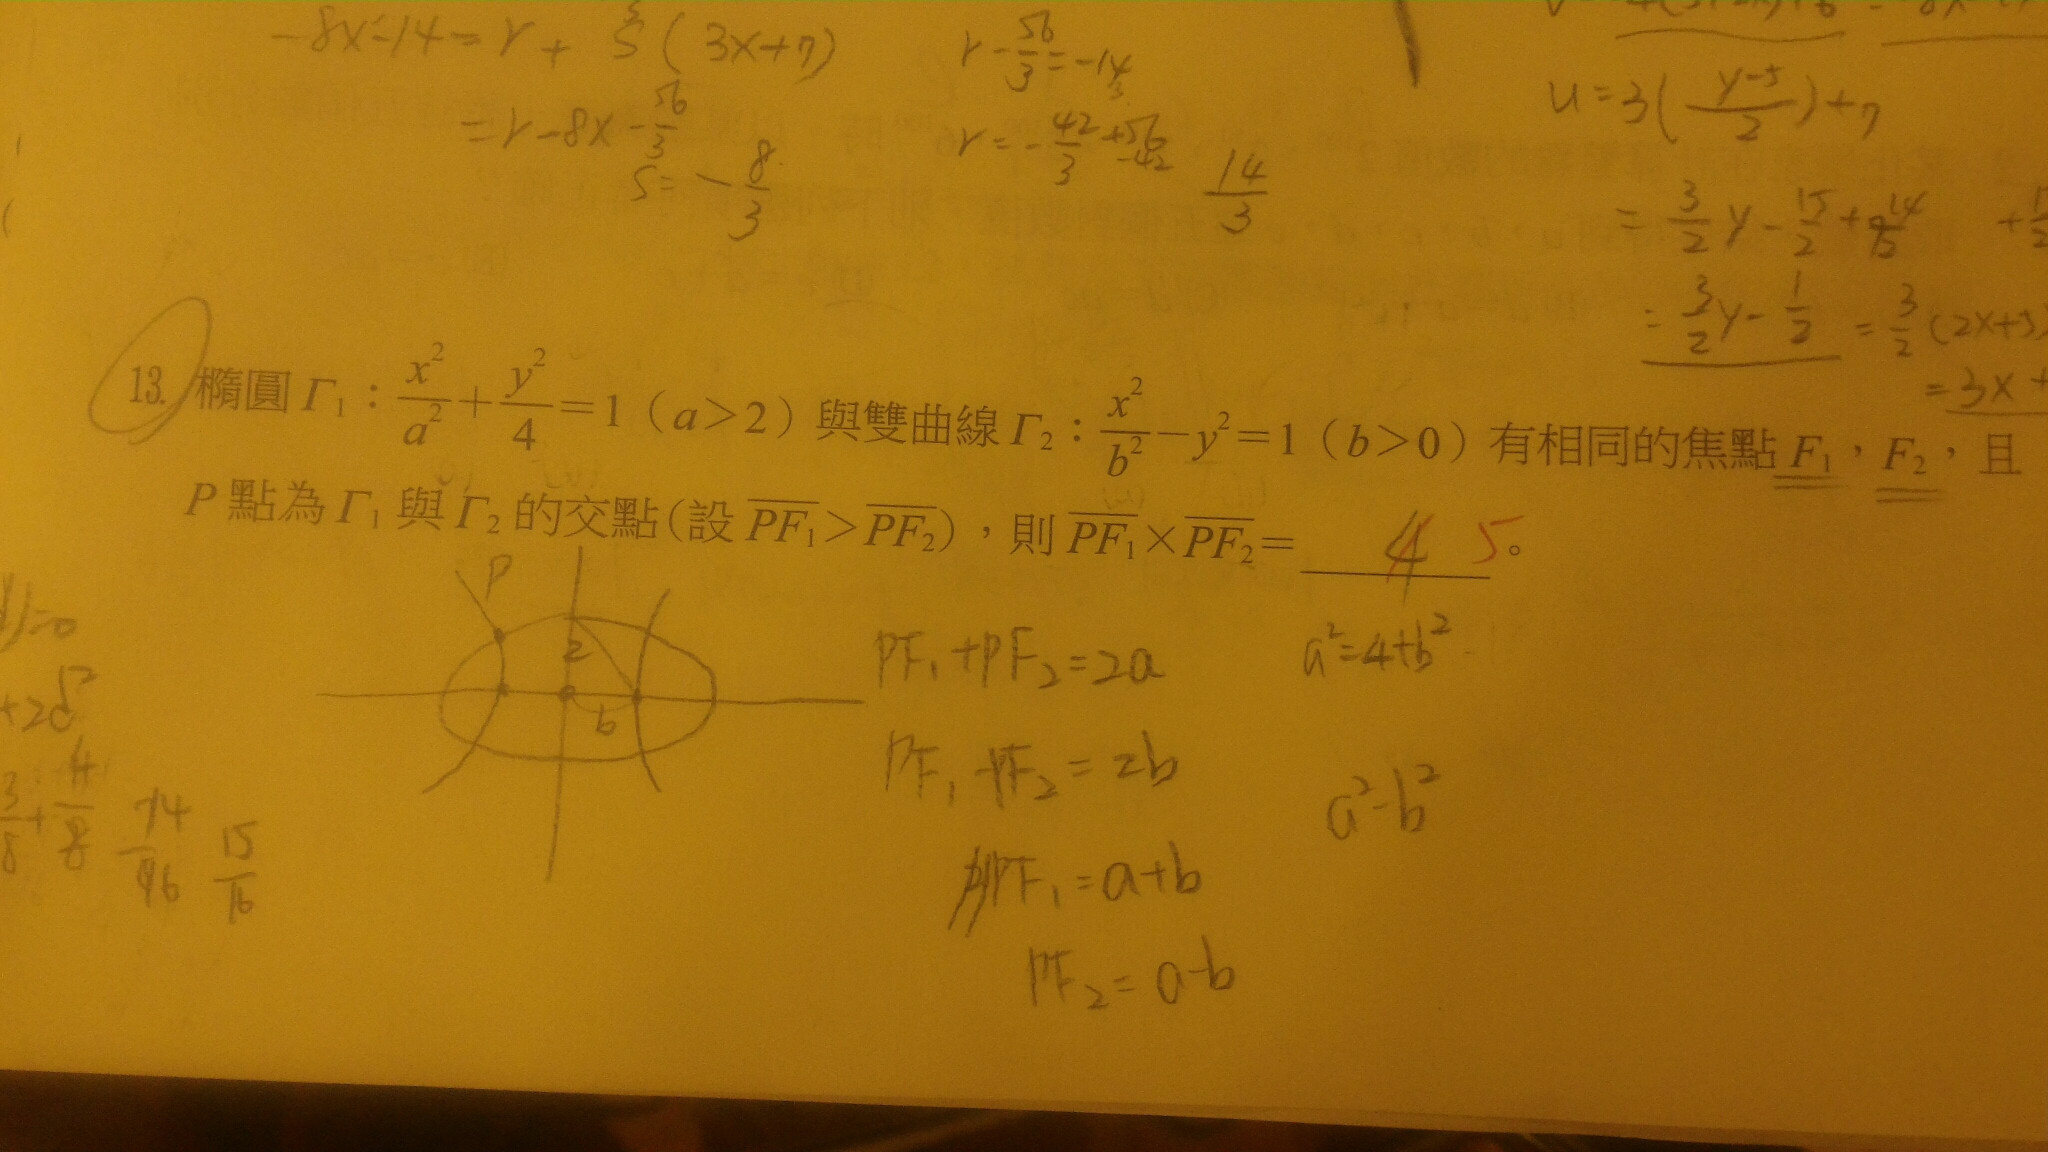 -8x-14=r+ s(3x+7)
=r-8x-56/3
s=-8/3
r-56/3=-14
r=-42/3+56
-42
14/3
u=3(y-5/2)+7
=3/2y-15/2+14/2
=3/2y-1/2=3/2(2x+5)
=3x+
13. 橢圓Γ₁:x²/a²+y²/4=1(a>2)與雙曲線Γ₂:x²/b²-y²=1(b>0)有相同的焦點F₁,F₂,且
P點為Γ₁與Γ₂的交點(設PF₁>PF₂),則PF₁×PF₂= 4 5。
P
2
b
PF₁+PF₂=2a
a²=4+b²
PF₁-PF₂=2b
a²-b²
PF₁=a+b
PF₂=a-b
=0
15/16